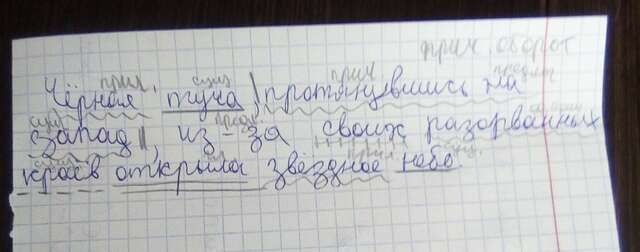 прич. оборот
прил. сущ прич предлог
Чёрная туча, протянувшись на
сущ предл
запад, из-за своих разорванных
сущ. гл прил сущ.
краев открыла звёздное небо